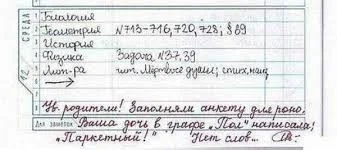 СРЕДА
1 Биология
2 Геометрия №713-716, 720, 728; § 89
3 История
4 Физика Задача №37,39
5 Лит-ра чит. Мёртвые души; стих. наиз.
6
12
Ув. родители! Заполняли анкету для роно.
Для заметок Ваша дочь в графе "Пол" написала:
"Паркетный!" Нет слов...